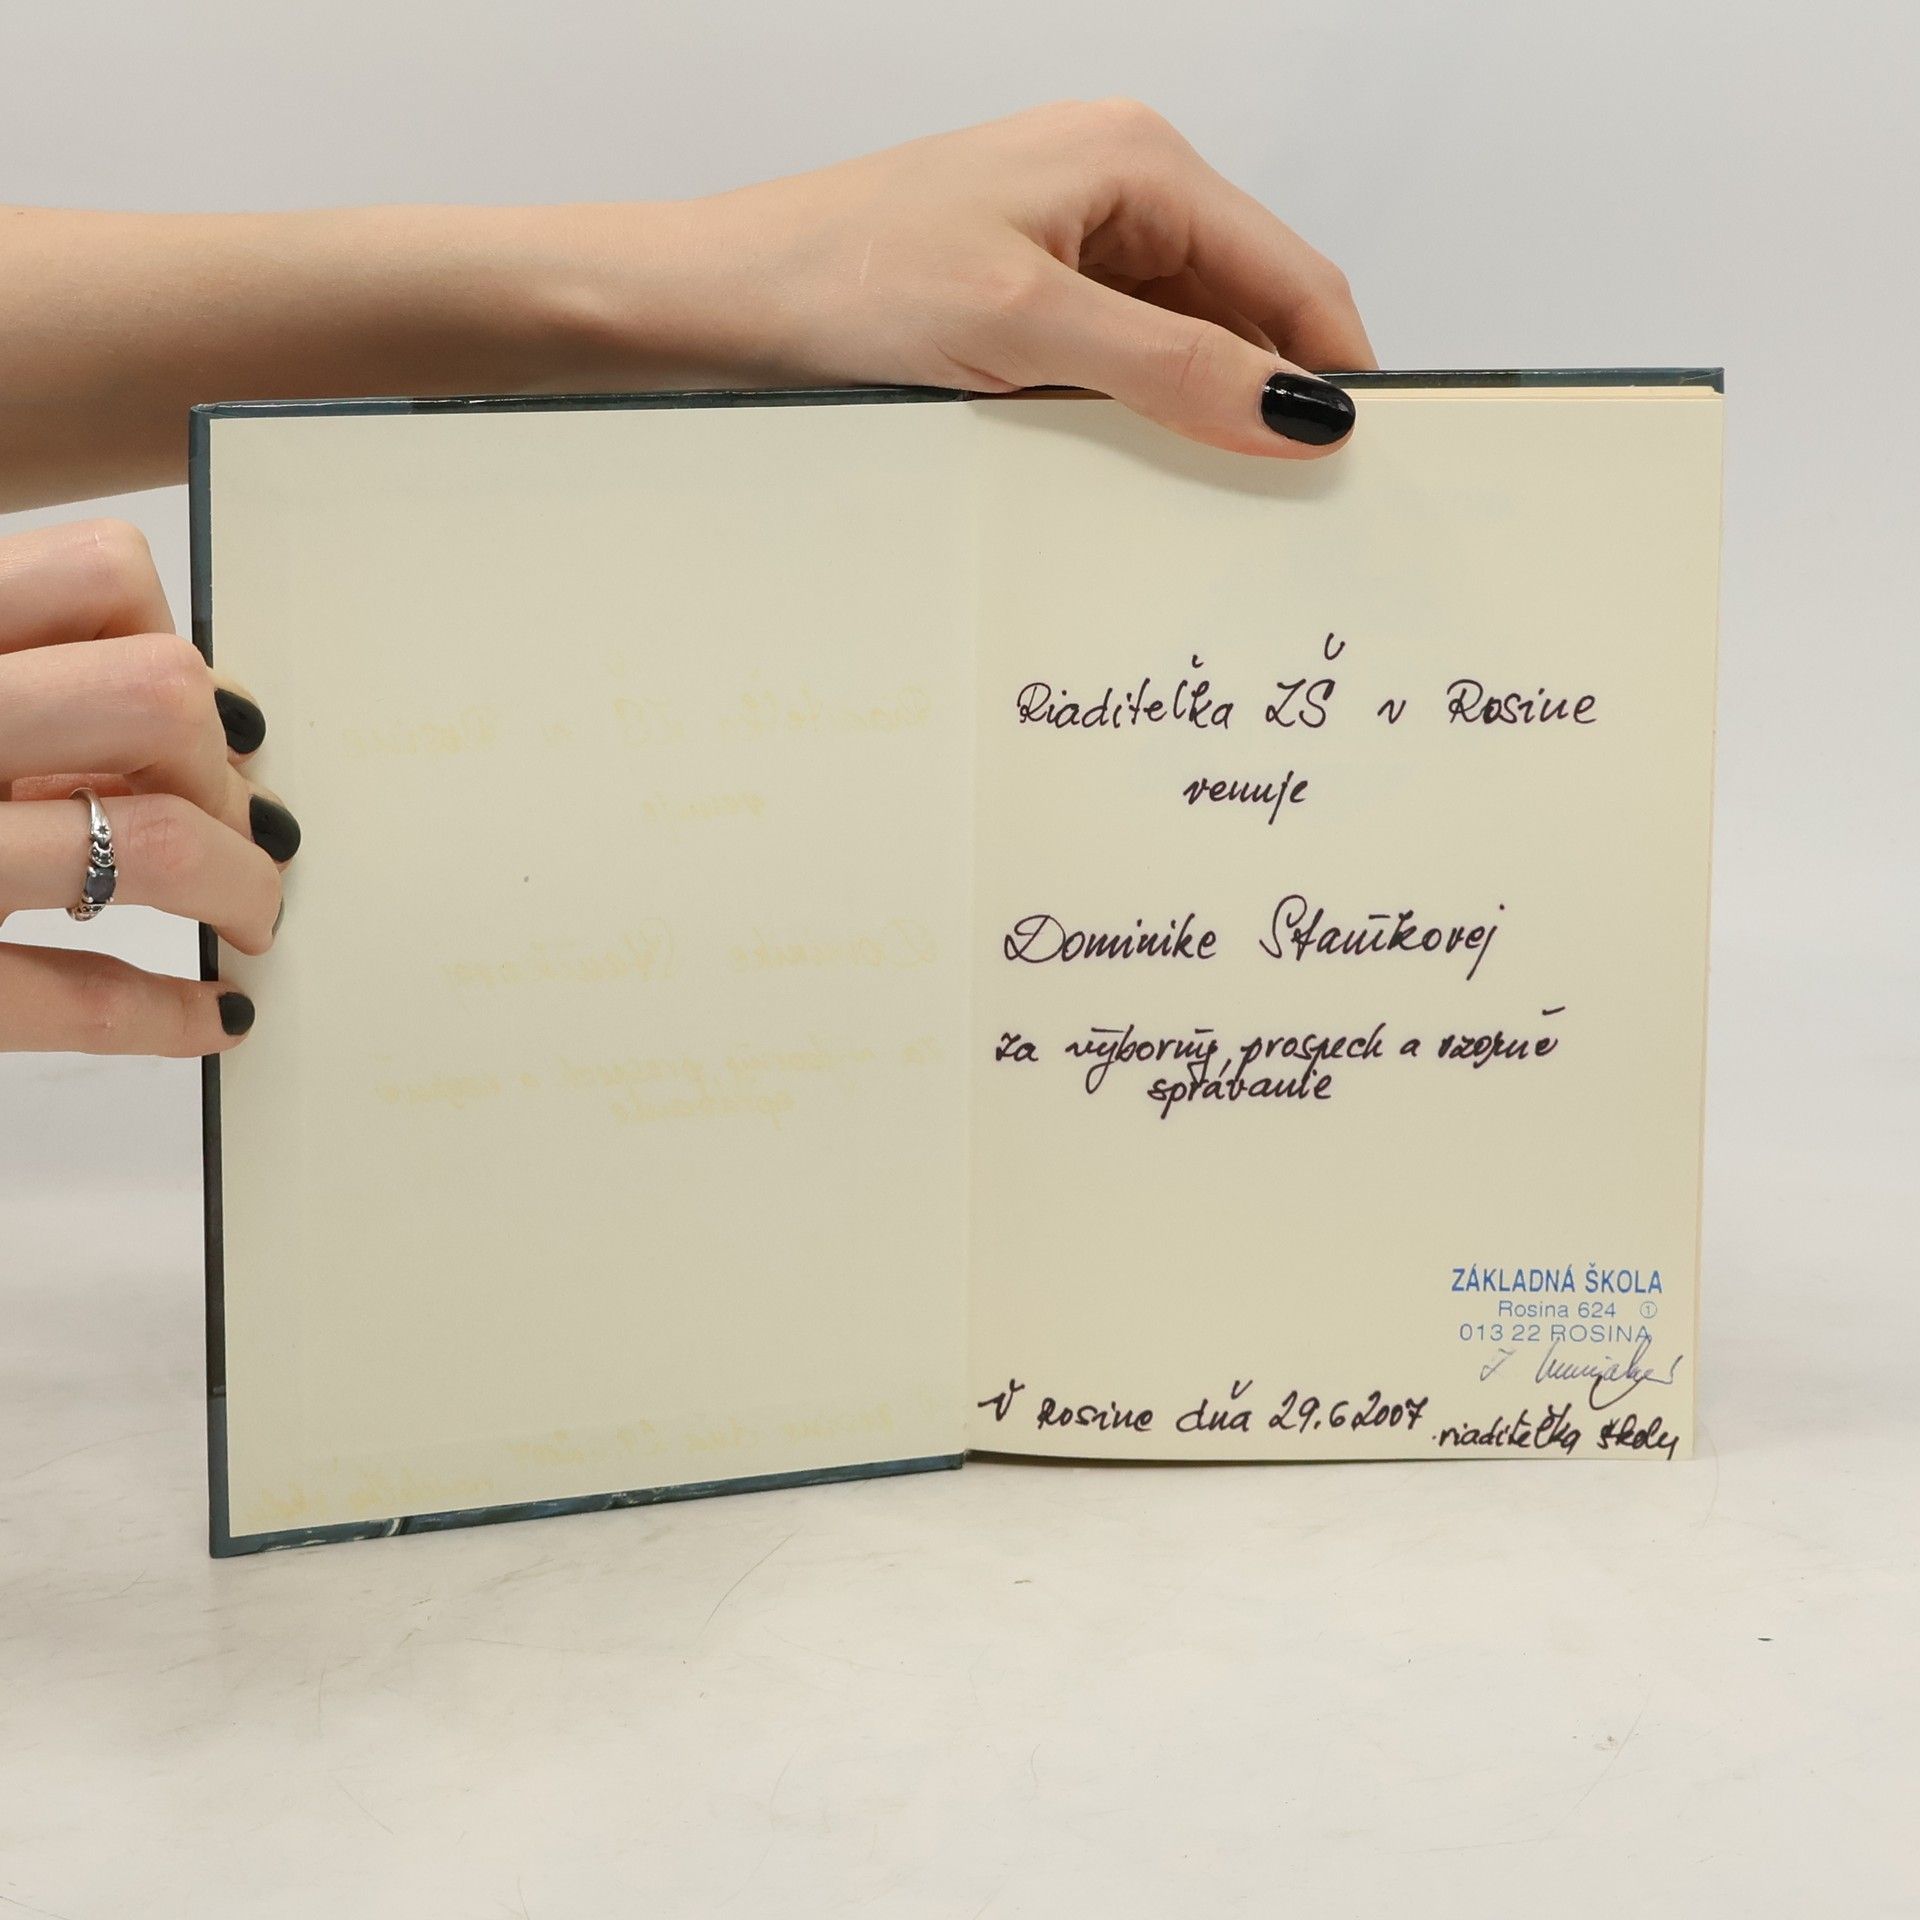 Riaditeľka ZŠ v Rosine
venuje
Dominike Staníkovej
za výborný prospech a vzorné
správanie
ZÁKLADNÁ ŠKOLA
Rosina 624 ①
013 22 ROSINA
V Rosine dňa 29.6.2007
riaditeľka školy